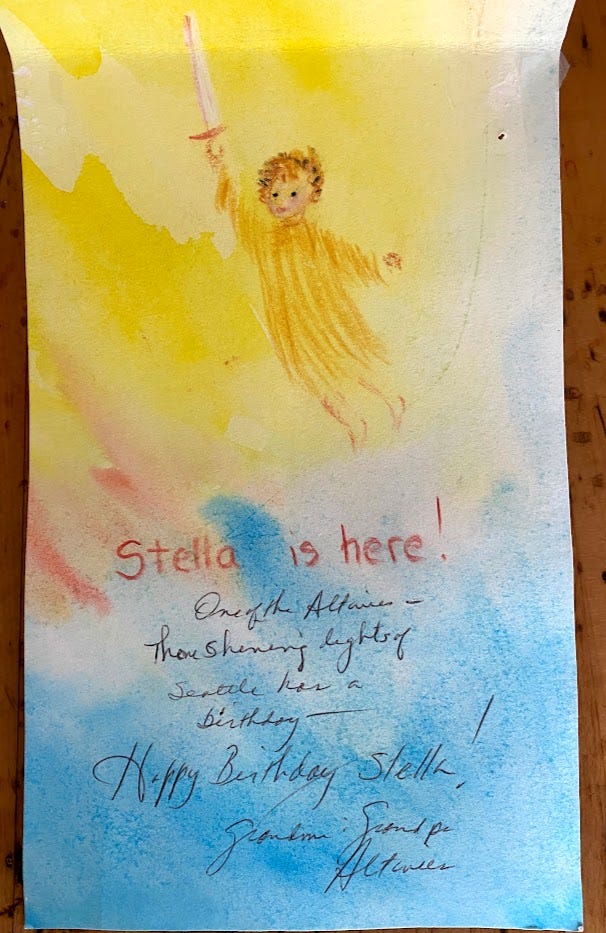 Stella is here!
One of the Altwies —
Those shining lights of
Seattle has a
birthday —
Happy Birthday Stella!
Grandma & Grandpa
Altwies